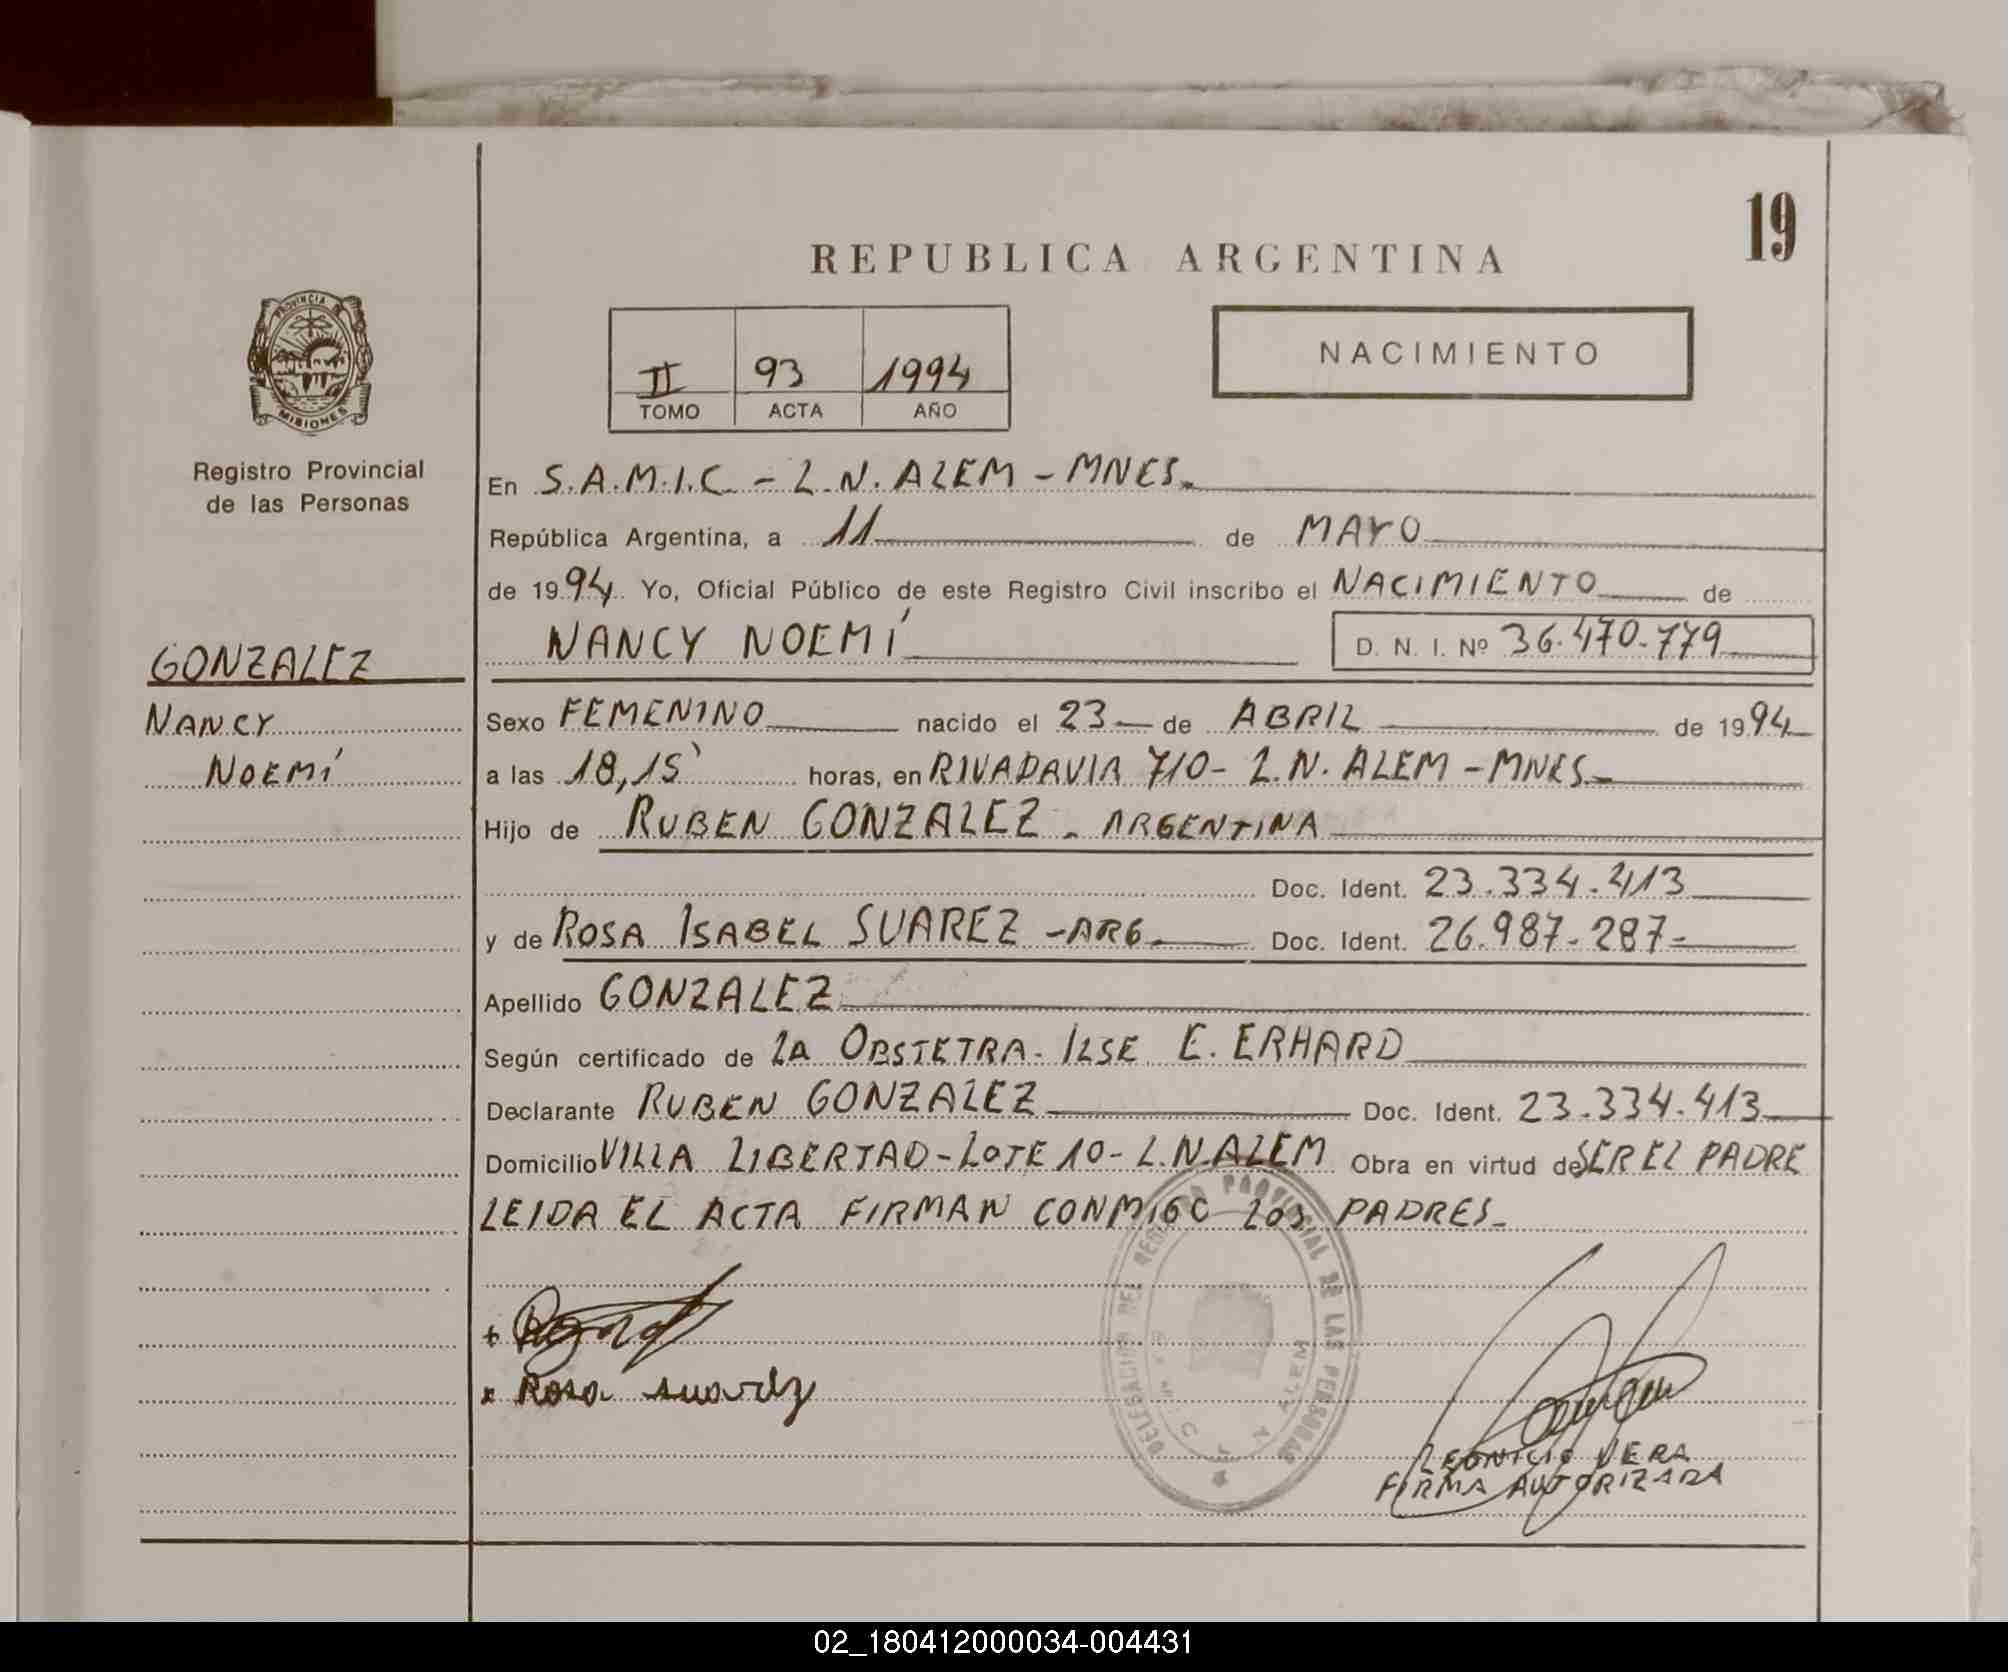 19
REPUBLICA ARGENTINA
PROVINCIA DE
MISIONES
Registro Provincial
de las Personas
II 93 1994
TOMO ACTA AÑO
NACIMIENTO
En S.A.M.I.C. - L.N. ALEM - MNES.
República Argentina, a 11 de MAYO
de 1994 Yo, Oficial Público de este Registro Civil inscribo el NACIMIENTO de
NANCY NOEMÍ D. N. I. Nº 36.470.779
GONZALEZ
NANCY
NOEMÍ
Sexo FEMENINO nacido el 23 de ABRIL de 1994
a las 18,15 horas, en RIVADAVIA 710 - L.N. ALEM - MNES.
Hijo de RUBEN GONZALEZ - ARGENTINA
Doc. Ident. 23.334.413
y de ROSA ISABEL SUAREZ - ARG. Doc. Ident. 26.987.287-
Apellido GONZALEZ
Según certificado de LA OBSTETRA. ILSE E. ERHARD
Declarante RUBEN GONZALEZ Doc. Ident. 23.334.413
Domicilio VILLA LIBERTAD - LOTE 10 - L.N.ALEM Obra en virtud de SER EL PADRE
LEIDA EL ACTA FIRMAN CONMIGO LOS PADRES.
DELEGACION DEL REGISTRO PROVINCIAL DE LAS PERSONAS
ALEM
x Rosa Suarez
LEONICIO VERA
FIRMA AUTORIZADA
02_180412000034-004431